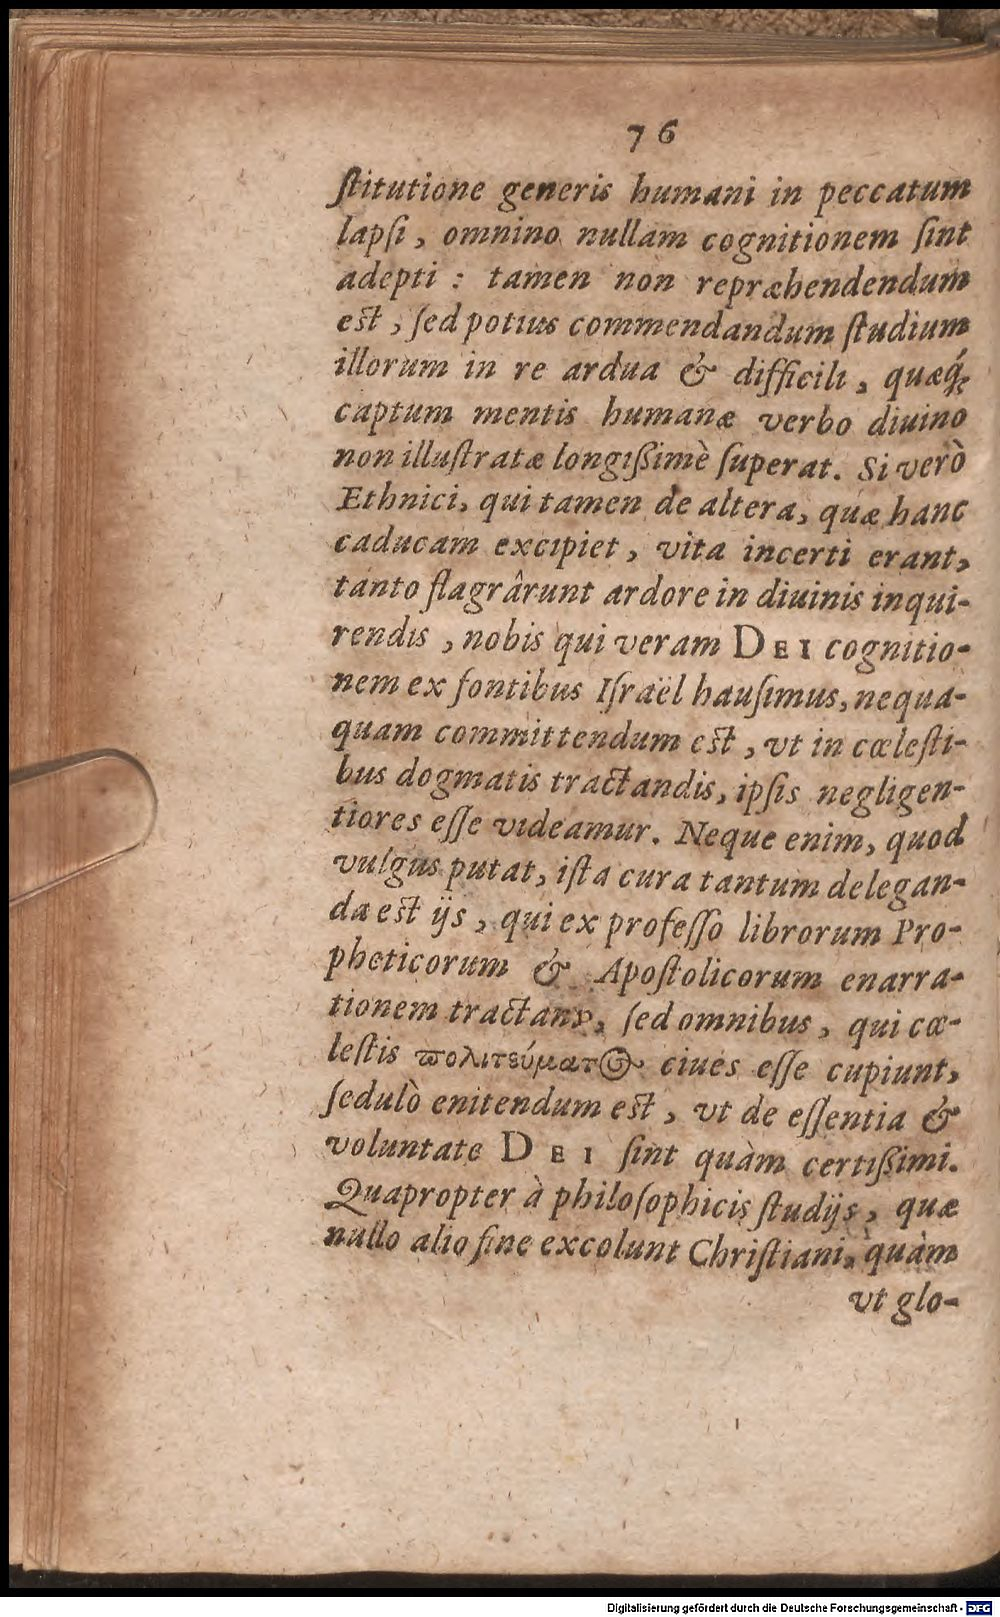 76
ſtitutione generis humani in peccatum
lapſi, omnino nullam cognitionem ſint
adepti : tamen non repræhendendum
est, ſed potius commendandum ſtudium
illorum in re ardua & difficili, quæq́;
captum mentis humanæ verbo diuino
non illuſtratæ longißimè ſuperat. Si verò
Ethnici, qui tamen de altera, quæ hanc
caducam excipiet, vita incerti erant,
tanto flagrârunt ardore in diuinis inqui-
rendis, nobis qui veram DEI cognitio-
nem ex fontibus Iſraël hauſimus, nequa-
quam committendum est, vt in cœleſti-
bus dogmatis tractandis, ipſis negligen-
tiores eſſe videamur. Neque enim, quod
vulgus putat, iſta cura tantum delegan-
da est ijs, qui ex profeſſo librorum Pro-
pheticorum & Apoſtolicorum enarra-
tionem tractant, ſed omnibus, qui cœ-
leſtis πολιτεύματ ciues eſſe cupiunt,
ſedulò enitendum est, vt de eſſentia &
voluntate DEI ſint quàm certißimi.
Quapropter à philoſophicis ſtudijs, quæ
nullo alio fine excolunt Chriſtiani, quàm
vt glo-
Digitalisierung gefördert durch die Deutsche Forschungsgemeinschaft - DFG